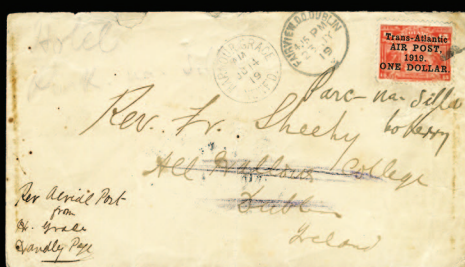 Hotel
HARBOUR GRACE
JU 14
19
FAIRVIEW, D.O. DUBLIN
4:15 PM
19
Trans-Atlantic
AIR POST,
1919.
ONE DOLLAR.
Parc-na-Silla
Rev. Fr. Sheehy
co Kerry
All Hallows College
Dublin
Ireland
Per Aerial Post
from
H. Grace
Handley Page